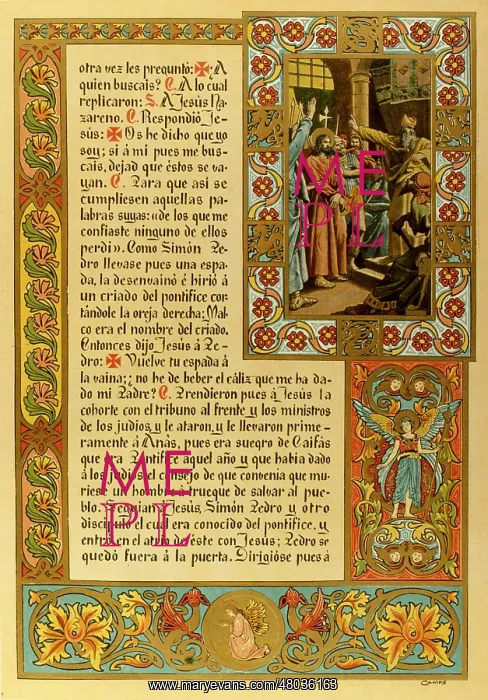 otra vez les preguntó: ✠ ¿A
quien buscais? C. A lo cual
replicaron: S. A Jesús Na-
zareno. C. Respondió Je-
sús: ✠ Os he dicho que yo
soy; si á mi pues me bus-
cais, dejad que éstos se va-
yan. C. Para que asi se
cumpliesen aquellas pa-
labras suyas: «de los que me
confiaste ninguno de ellos
perdi». Como Simón Pe-
dro llevase pues una espa-
da, la desenvainó é hirió á
un criado del pontífice cor-
tándole la oreja derecha; Mal-
co era el nombre del criado.
Entonces dijo Jesús á Pe-
dro: ✠ Vuelve tu espada á
la vaina; ¿no he de beber el cáliz que me ha da-
do mi Padre? C. Prendieron pues á Jesús la
cohorte con el tribuno al frente y los ministros
de los judios y le ataron, y le llevaron prime-
ramente á Anás, pues era suegro de Caifás
que era Pontifice aquel año y que habia dado
á los judios el consejo de que convenia que mu-
riese un hombre á trueque de salvar al pue-
blo. Seguian á Jesús, Simón Pedro y otro
discipulo el cual era conocido del pontífice, y
entró en el atrio de éste con Jesús; Pedro se
quedó fuera á la puerta. Dirigióse pues á
ME
PL
ME
PL
www.maryevans.com/48036163